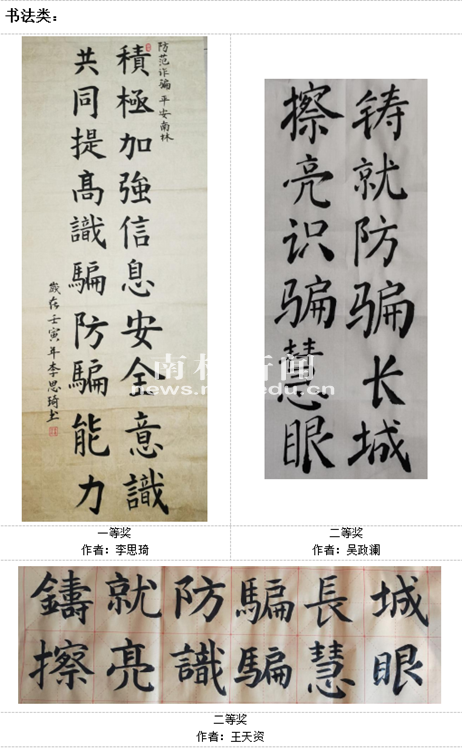 书法类：
防范诈骗 平安南林
積極加強信息安全意識
共同提高識騙防騙能力
歲在壬寅年李思琦书
铸就防骗长城
擦亮识骗慧眼
南林新闻
news.njfu.edu.cn
一等奖
作者：李思琦
二等奖
作者：吴政澜
鑄就防騙長城
擦亮識騙慧眼
二等奖
作者：王天资